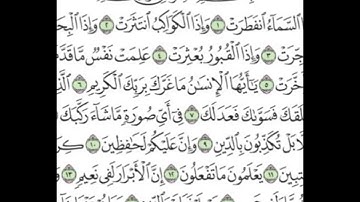 ٱلسَّمَآءُ ٱنفَطَرَتْ ١ وَإِذَا ٱلْكَوَاكِبُ ٱنتَثَرَتْ ٢ وَإِذَا ٱلْبِحَا
جِّرَتْ ٣ وَإِذَا ٱلْقُبُورُ بُعْثِرَتْ ٤ عَلِمَتْ نَفْسٌ مَّا قَدَّمَ
خَّرَتْ ٥ يَٰٓأَيُّهَا ٱلْإِنسَٰنُ مَا غَرَّكَ بِرَبِّكَ ٱلْكَرِيمِ ٦
لَقَكَ فَسَوَّىٰكَ فَعَدَلَكَ ٧ فِىٓ أَىِّ صُورَةٍ مَّا شَآءَ رَكَّبَكَ
لَّا بَلْ تُكَذِّبُونَ بِٱلدِّينِ ٩ وَإِنَّ عَلَيْكُمْ لَحَٰفِظِينَ ١٠ كِرَ
تِبِينَ ١١ يَعْلَمُونَ مَا تَفْعَلُونَ ١٢ إِنَّ ٱلْأَبْرَارَ لَفِى نَعِيمٍ ١٣